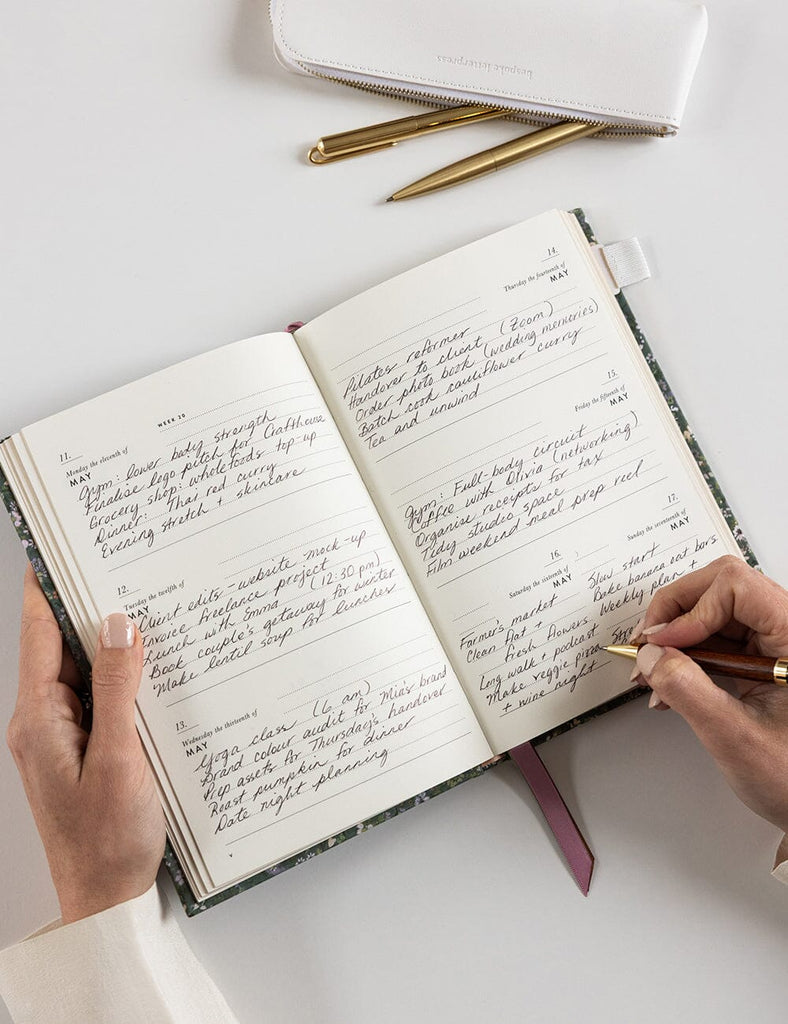 bespoke letterpress
WEEK 20
11.
Monday the eleventh of
MAY
Gym: lower body strength
Finalise logo pitch for Crafthouse
Grocery shop: wholefoods top-up
Dinner: Thai red curry
Evening stretch + skincare
12.
Tuesday the twelfth of
MAY
Client edits - website mock-up
Invoice freelance project
Lunch with Emma (12:30 pm)
Book couple's getaway for winter
Make lentil soup for lunches
13.
Wednesday the thirteenth of
MAY
Yoga class (6 am)
Brand colour audit for Mia's brand
Prep assets for Thursday's handover
Roast pumpkin for dinner
Date night planning
14.
Thursday the fourteenth of
MAY
Pilates reformer
Handover to client (Zoom)
Order photo book (wedding memories)
Batch cook cauliflower curry
Tea and unwind
15.
Friday the fifteenth of
MAY
Gym: Full-body circuit
Coffee with Olivia (networking)
Organise receipts for tax
Tidy studio space
Film weekend meal prep reel
16.
Saturday the sixteenth of
MAY
Farmer's market
Clean flat +
fresh flowers
Long walk + podcast
Make veggie pizza
+ wine night
17.
Sunday the seventeenth of
MAY
Slow start
Bake banana oat bars
Weekly plan +